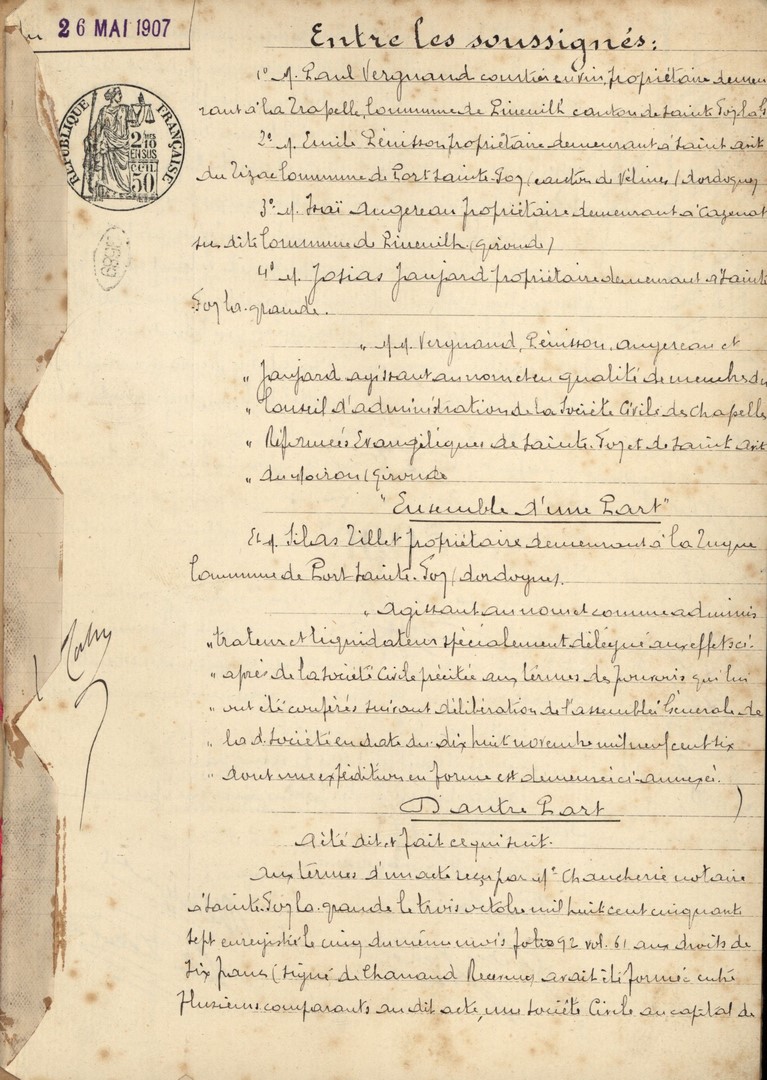 26 MAI 1907
RÉPUBLIQUE FRANÇAISE
2/10
EN SUS
50
Entre les soussignés:
1º M. Paul Vergnand courtier en vin, propriétaire demeu
rant à la Trapelle, Commune de Pineuilh canton de Sainte Foy la G
2º M. Emile Pénisson propriétaire demeurant à Saint Avit
du Tizac Commune de Port Sainte-Foy (canton de Vélines) dordogne)
3º M. Isaï Augereau propriétaire demeurant à Cazenat
sus dite Commune de Pineuilh (Gironde)
4º M. Josias Jaujard propriétaire demeurant à Sainte
Foy la grande.
„ MM. Vergnand, Pénisson, augereau et
„ Jaujard agissant au nom et en qualité de membres du
„ Conseil d'administration de la Société Civile des Chapelles
„ Réformées Evangéliques de Sainte-Foy et de Saint Avit
„ du Moiron (Gironde
"Ensemble d'une Part"
Et M. Silas Tillet propriétaire demeurant à la
Commune de Port Sainte-Foy (dordogne).
„ agissant au nom et comme adminis
„ trateur et liquidateur spécialement délégué aux effets ci-
„ après de la Société Civile précitée aux termes des pouvoirs qui lui
„ ont été conférés suivant délibération de l'assemblée Générale de
„ la d. Société en date du dix huit novembre mil neuf cent six
„ dont une expédition en forme est demeurée ci-annexée.
D'autre Part
A été dit et fait ce qui suit.
aux termes d'un acte reçu par Me Chaucherie notaire
à Sainte-Foy la grande le trois octobre mil huit cent cinquante
sept enregistré le cinq du même mois folio 92 vol. 61 aux droits de
six francs (signé de Receveur avait été formée entre
plusieurs comparants au dit acte, une Société Civile au capital de